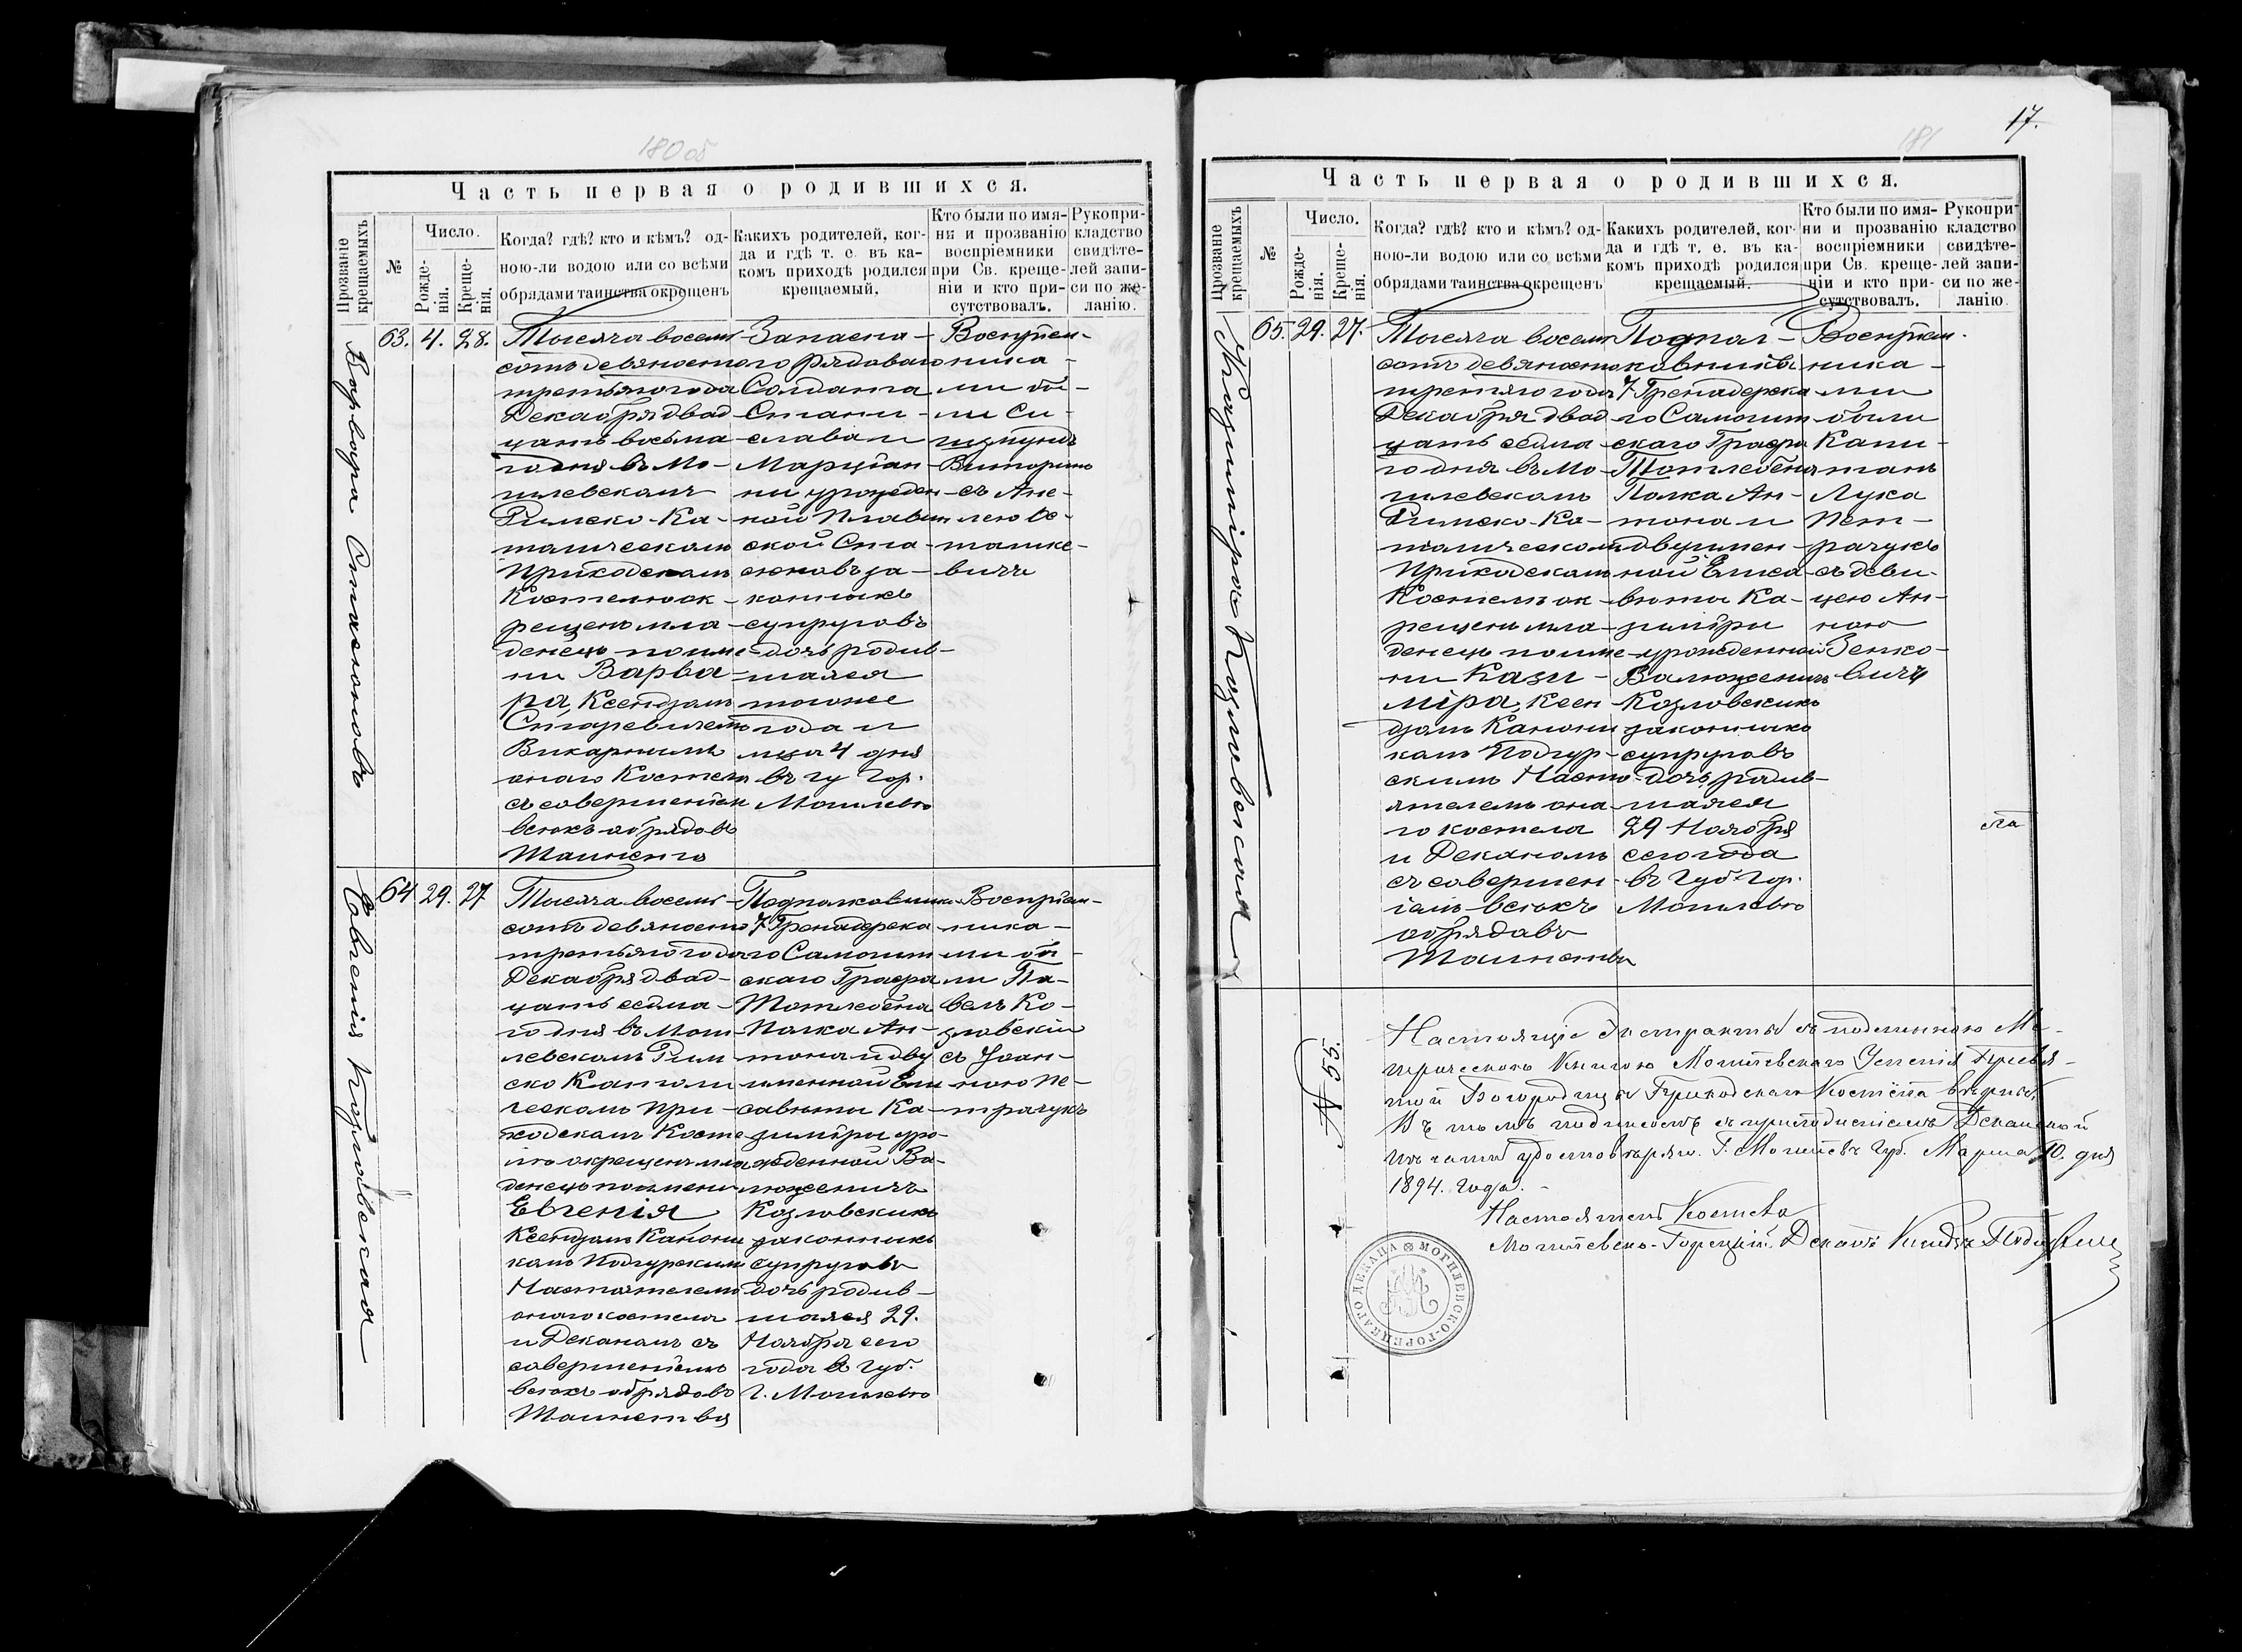 180 об
Часть первая о родившихся.
Прозваніе крещаемыхъ
№
Число.
Рожде-
нія.
Креще-
нія.
Когда? гдѣ? кто и кѣмъ? од-
ною-ли водою или со всѣми
обрядами таинства окрещенъ
Какихъ родителей, ког-
да и гдѣ т. е. въ ка-
комъ приходѣ родился
крещаемый.
Кто были по имя-
ни и прозванію
воспріемники
при Св. креще-
ніи и кто при-
сутствовалъ.
Рукопри-
кладство
свидѣте-
лей запи-
си по же-
ланію.
Варвара Стасюковъ
63. 4. 28.
Тысяча восемь
сотъ девяносто
третьяго года
Декабря двад
цать восьма
го дня въ Мо-
гилевскомъ
Римско-Ка-
толическомъ
Приходскомъ
Костелѣ ок-
рещенъ мла-
денецъ по име-
ни Варва-
ра, Ксендзомъ
Старевичемъ
Викарнымъ
онаго Костела
съ совершеніем
всѣхъ обрядовъ
Таинства
Запасна-
го рядоваго
Солдата
Стани-
слава и
Марціан-
ны урожден-
ной
ской Ста-
сюковъ за-
конныхъ
супруговъ
дочь родив-
шаяся
тогоже
года и
мца 4 дня
въ гу. гор.
Могилевѣ
Воспріем-
ника-
ми бы-
ли Си-
гизмундъ
съ Ане-
лею Ос-
ташке-
вичъ
Евгенія Козловская
64 29. 27
Тысяча восемь
сотъ девяносто
третьяго года
Декабря двад-
цать седма-
го дня въ Моги-
левскомъ Рим
ско Катол
ческомъ При-
ходскомъ Косте
лѣ окрещенъ мла
денецъ по имени
Евгенія
Ксендзомъ Канони
комъ Подгурскимъ
Настоятелемъ
онаго костела
и Деканомъ съ
совершеніемъ
всѣхъ обрядовъ
Таинства
Подполковника
7 Гренадерска
го Самогит
скаго Графа
Тотлебена
Полка Ан-
тона и дву
именной Ели
саветы Ка-
зиміры уро-
жденной Ва-
люженичъ
Козловскихъ
законныхъ
супруговъ
дочь родив-
шаяся 29.
Ноября сего
года въ Губ.
г. Могилевѣ
Воспріем-
ника-
ми бы
ли Па-
велъ Ко-
зловскій
съ Іоан-
ною Пе-
трачукъ
17.
181
Часть первая о родившихся.
Прозваніе крещаемыхъ
№
Число.
Рожде-
нія.
Креще-
нія.
Когда? гдѣ? кто и кѣмъ? од-
ною-ли водою или со всѣми
обрядами таинства окрещенъ
Какихъ родителей, ког-
да и гдѣ т. е. въ ка-
комъ приходѣ родился
крещаемый.
Кто были по имя-
ни и прозванію
воспріемники
при Св. креще-
ніи и кто при-
сутствовалъ.
Рукопри-
кладство
свидѣте-
лей запи-
си по же-
ланію.
Казиміра Козловская
65. 29. 27.
Тысяча восем
сотъ девяносто
третяго года
Декабря двад
цать седма
го дня въ Мо-
гилевскомъ
Римско-Ка-
толическомъ
Приходскомъ
Костелѣ ок-
рещенъ мла-
денецъ по име
ни Кази-
міра, Ксен
дзомъ Канони
комъ Подгур-
скимъ Насто-
ятелемъ она-
го костела
и Деканомъ
съ совершен-
іемъ всѣхъ
обрядовъ
Таинства
Подпол-
ковника
7 Гренадерска
го Самогит
скаго Графа
Тотлебена
Полка Ан-
тона и
двуимен-
ной Елиса-
веты Ка-
зиміры
урожденной
Валюженичъ
Козловскихъ
законныхъ
супруговъ
дочь родив-
шаяся
29 Ноября
сего года
въ Губ. гор.
Могилевѣ
Воспріем-
ника-
ми
были
Капи-
танъ
Лука
Пет-
рачукъ
съ деви-
цею Ан-
ною
Зенко-
вичъ
№ 55.
Настоящіе Экстракты съ подлинною Ме-
трическою Книгою Могилевскаго Успенія Пресвя-
той Богородицы Приходскаго Костёла вѣрны.
Въ томъ подписомъ съ приложеніемъ Деканской
печати удостовѣряю. Г. Могилевъ Губ. Марта 10. дня
1894. года.
Настоятель Костела
Могилевско-Горецкій Деканъ Ксендзъ
МОГИЛЕВСКО-ГОРЕЦКАГО ДЕКАНА